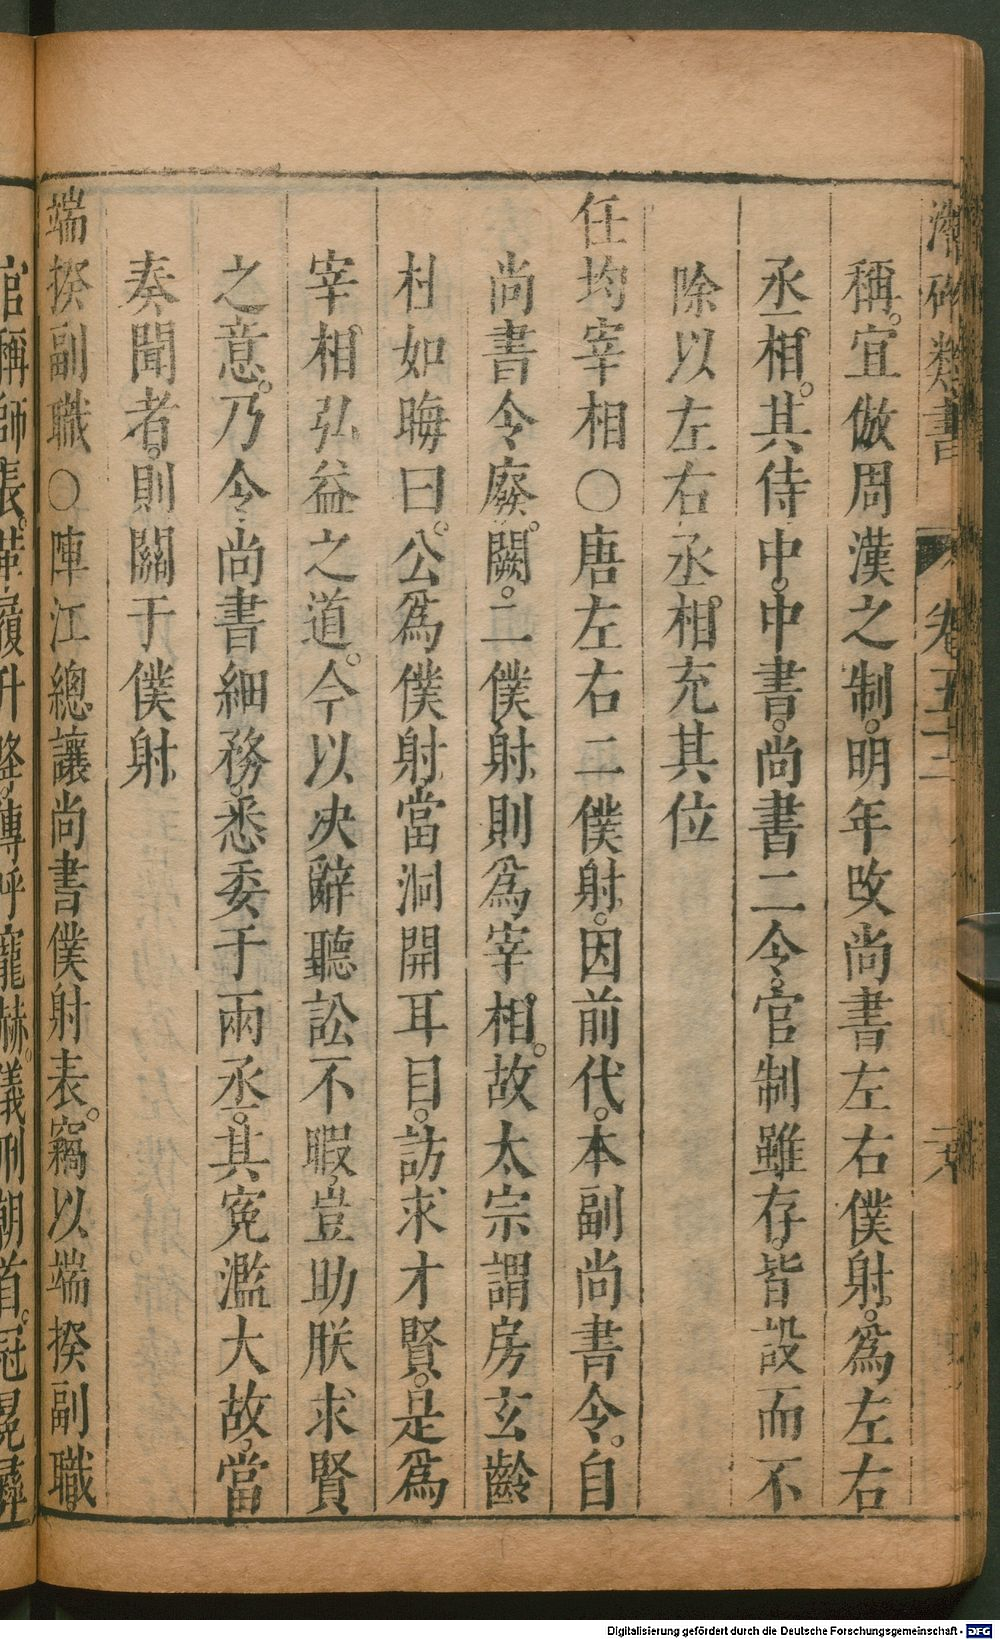 潛確類書 卷五十二
稱。宜倣周漢之制。明年改尚書左右僕射。爲左右
丞相。其侍中。中書。尚書二令。官制雖存。皆設而不
除以左右丞相充其位
任均宰相○唐左右二僕射。因前代。本副尚書令。自
尚書令廢。闕。二僕射則爲宰相。故太宗謂房玄齡
杜如晦曰。公爲僕射當洞開耳目。訪求才賢。是爲
宰相弘益之道。今以决辭聽訟不暇。豈助朕求賢
之意。乃令尚書細務。悉委于兩丞。其寃濫大故。當
奏聞者。則關于僕射
端揆副職○陳江總讓尚書僕射表。竊以端揆副職
官稱師表。革履升降。傳呼寵赫。儀刑朝首。冠冕彝
Digitalisierung gefördert durch die Deutsche Forschungsgemeinschaft - DFG